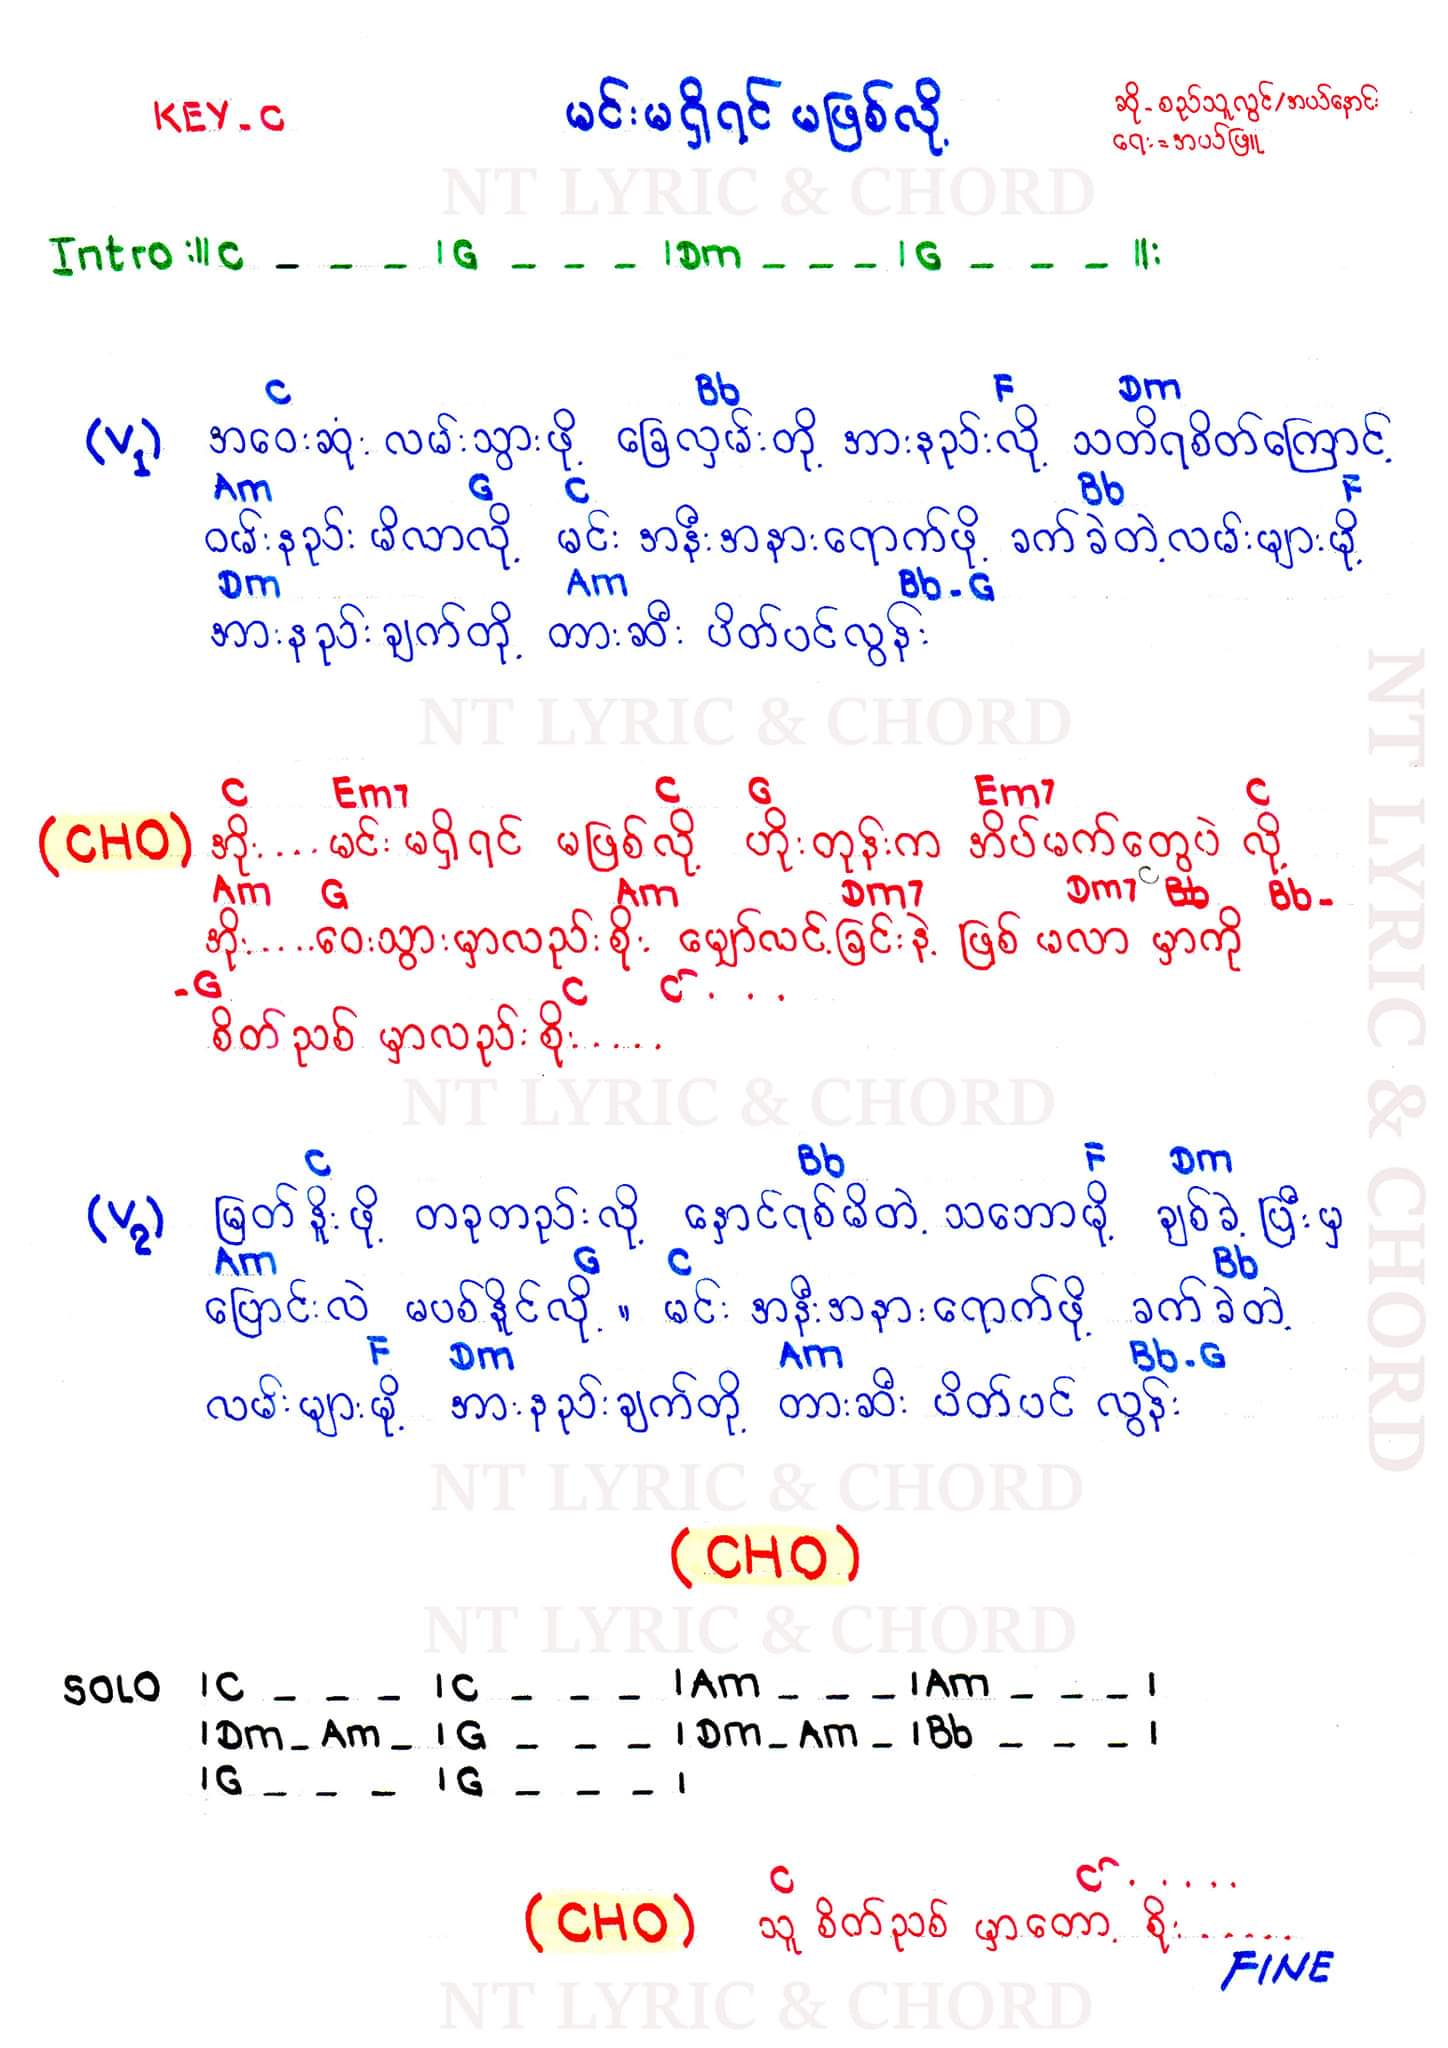 KEY - C
မင်းမရှိရင် မဖြစ်လို့
ဆို - စည်သူလွင်/အယ်နောင်
ရေး = အယ်ဖြူ
NT LYRIC & CHORD
Intro :|| C _ _ _ | G _ _ _ | Dm _ _ _ | G _ _ _ ||:
C Bb F Dm
(V1) အဝေးဆုံး လမ်းသွားဖို့ ခြေလှမ်းတို့ အားနည်းလို့ သတိရစိတ်ကြောင့်
Am G C Bb F
ဝမ်းနည်း မိလာလို့ မင်း အနီးအနားရောက်ဖို့ ခက်ခဲတဲ့လမ်းများမို့
Dm Am Bb - G
အားနည်းချက်တို့ တားဆီး ပိတ်ပင်လွန်း
NT LYRIC & CHORD
C Em7 C G Em7 C
(CHO) အိုး.... မင်းမရှိရင် မဖြစ်လို့ ဟိုးတုန်းက အိပ်မက်တွေပဲ လို့
Am G Am Dm7 Dm7 C Bb Bb -
အိုး.....ဝေးသွားမှာလည်းစိုး မျှော်လင့်ခြင်းနဲ့ ဖြစ် မလာ မှာကို
- G C C . . .
စိတ်ညစ် မှာလည်းစိုး.....
NT LYRIC & CHORD
C Bb F Dm
(V2) မြတ်နိုးဖို့ တခုတည်းလို့ နှောင်ရစ်မိတဲ့ သဘောမို့ ချစ်ခဲ့ပြီးမှ
Am G C Bb
ပြောင်းလဲ မပစ်နိုင်လို့ ။ မင်း အနီးအနားရောက်ဖို့ ခက်ခဲတဲ့
F Dm Am Bb - G
လမ်းများမို့ အားနည်းချက်တို့ တားဆီး ပိတ်ပင် လွန်း
NT LYRIC & CHORD
(CHO)
NT LYRIC & CHORD
SOLO | C _ _ _ | C _ _ _ | Am _ _ _ | Am _ _ _ |
| Dm _ Am _ | G _ _ _ | Dm _ Am _ | Bb _ _ _ |
| G _ _ _ | G _ _ _ |
C C . . . . .
(CHO) သူ စိတ်ညစ် မှာတော့ စိုး......
FINE
NT LYRIC & CHORD
NT LYRIC & CHORD